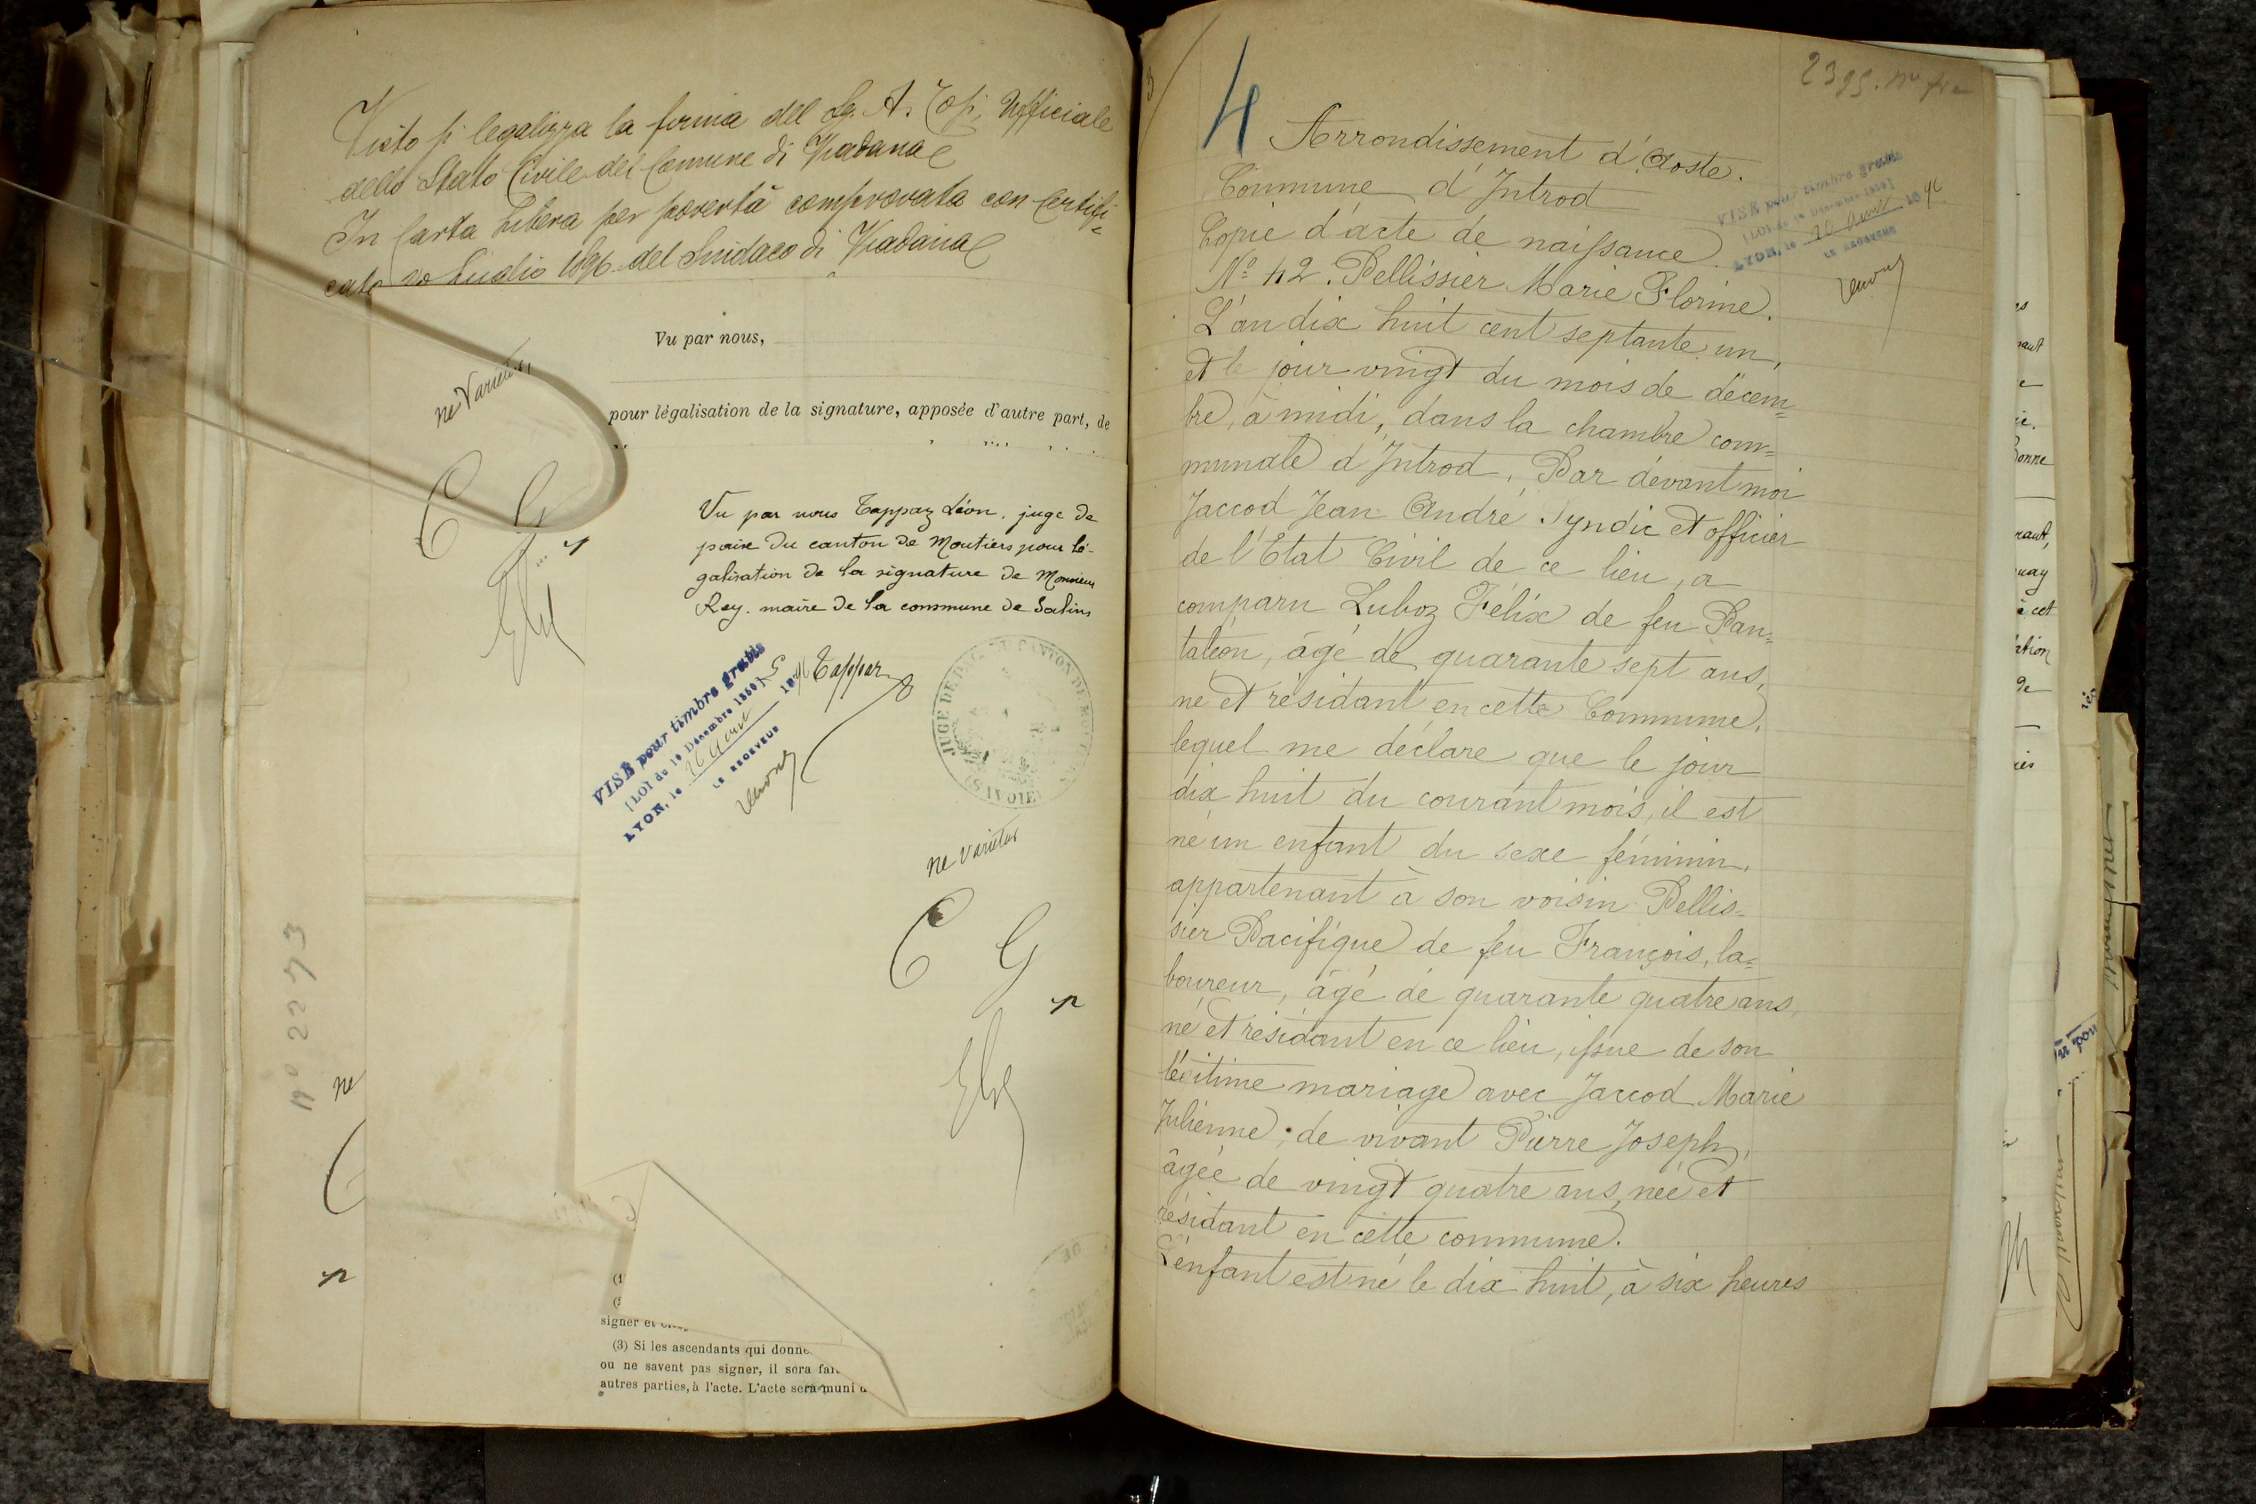 Visto si legalizza la firma del Sg. A. Ufficiale
dello Stato Civile del Comune di Viadana
In Carta Libera per povertà comprovata con Certifi-
cato 20 Luglio 1896 del Sindaco di Viadana
Vu par nous,
ne Varietur
pour légalisation de la signature, apposée d'autre part, de
C G
Vu par nous Tappaz Léon, juge de
paix du canton de Moutiers pour lé-
galisation de la signature de Monsieur
Rey. maire de la commune de Salins
Tappaz
VISÉ pour timbre gratis
(LOI du 10 Décembre 1850)
LYON, le 26 Aout 1896
LE RECEVEUR
JUGE DE PAIX DU CANTON DE MOUTIERS
(SAVOIE)
ne varietur
C G
No 2273
ne
signer et
(3) Si les ascendants qui donne
ou ne savent pas signer, il sera fai
autres parties, à l'acte. L'acte sera muni d
4
2395.
Arrondissement d'Aoste.
Commune d'Introd
Copie d'acte de naissance
VISÉ pour timbre gratis
(LOI du 10 Décembre 1850)
LYON, le 26 Aout 1896
LE RECEVEUR
No 42. Pellissier Marie Florine.
L'an dix huit cent septante un,
et le jour vingt du mois de décem=
bre, à midi, dans la chambre com=
munale d'Introd, Par dévant moi
Jaccod Jean André Syndic et officier
de l'Etat Civil de ce lieu, a
comparu Luboz Félix de feu Pan=
taléon, âgé de quarante sept ans,
né et résidant en cette Commune,
lequel me déclare que le jour
dix huit du courant mois, il est
né un enfant du sexe féminin,
appartenant à son voisin Pellis=
sier Pacifique de feu François, la=
boureur, âgé de quarante quatre ans,
né et résidant en ce lieu, issue de son
légitime mariage avec Jaccod Marie
Julienne, de vivant Pierre Joseph,
âgée de vingt quatre ans, née et
résidant en cette commune.
L'enfant est né le dix huit, à six heures